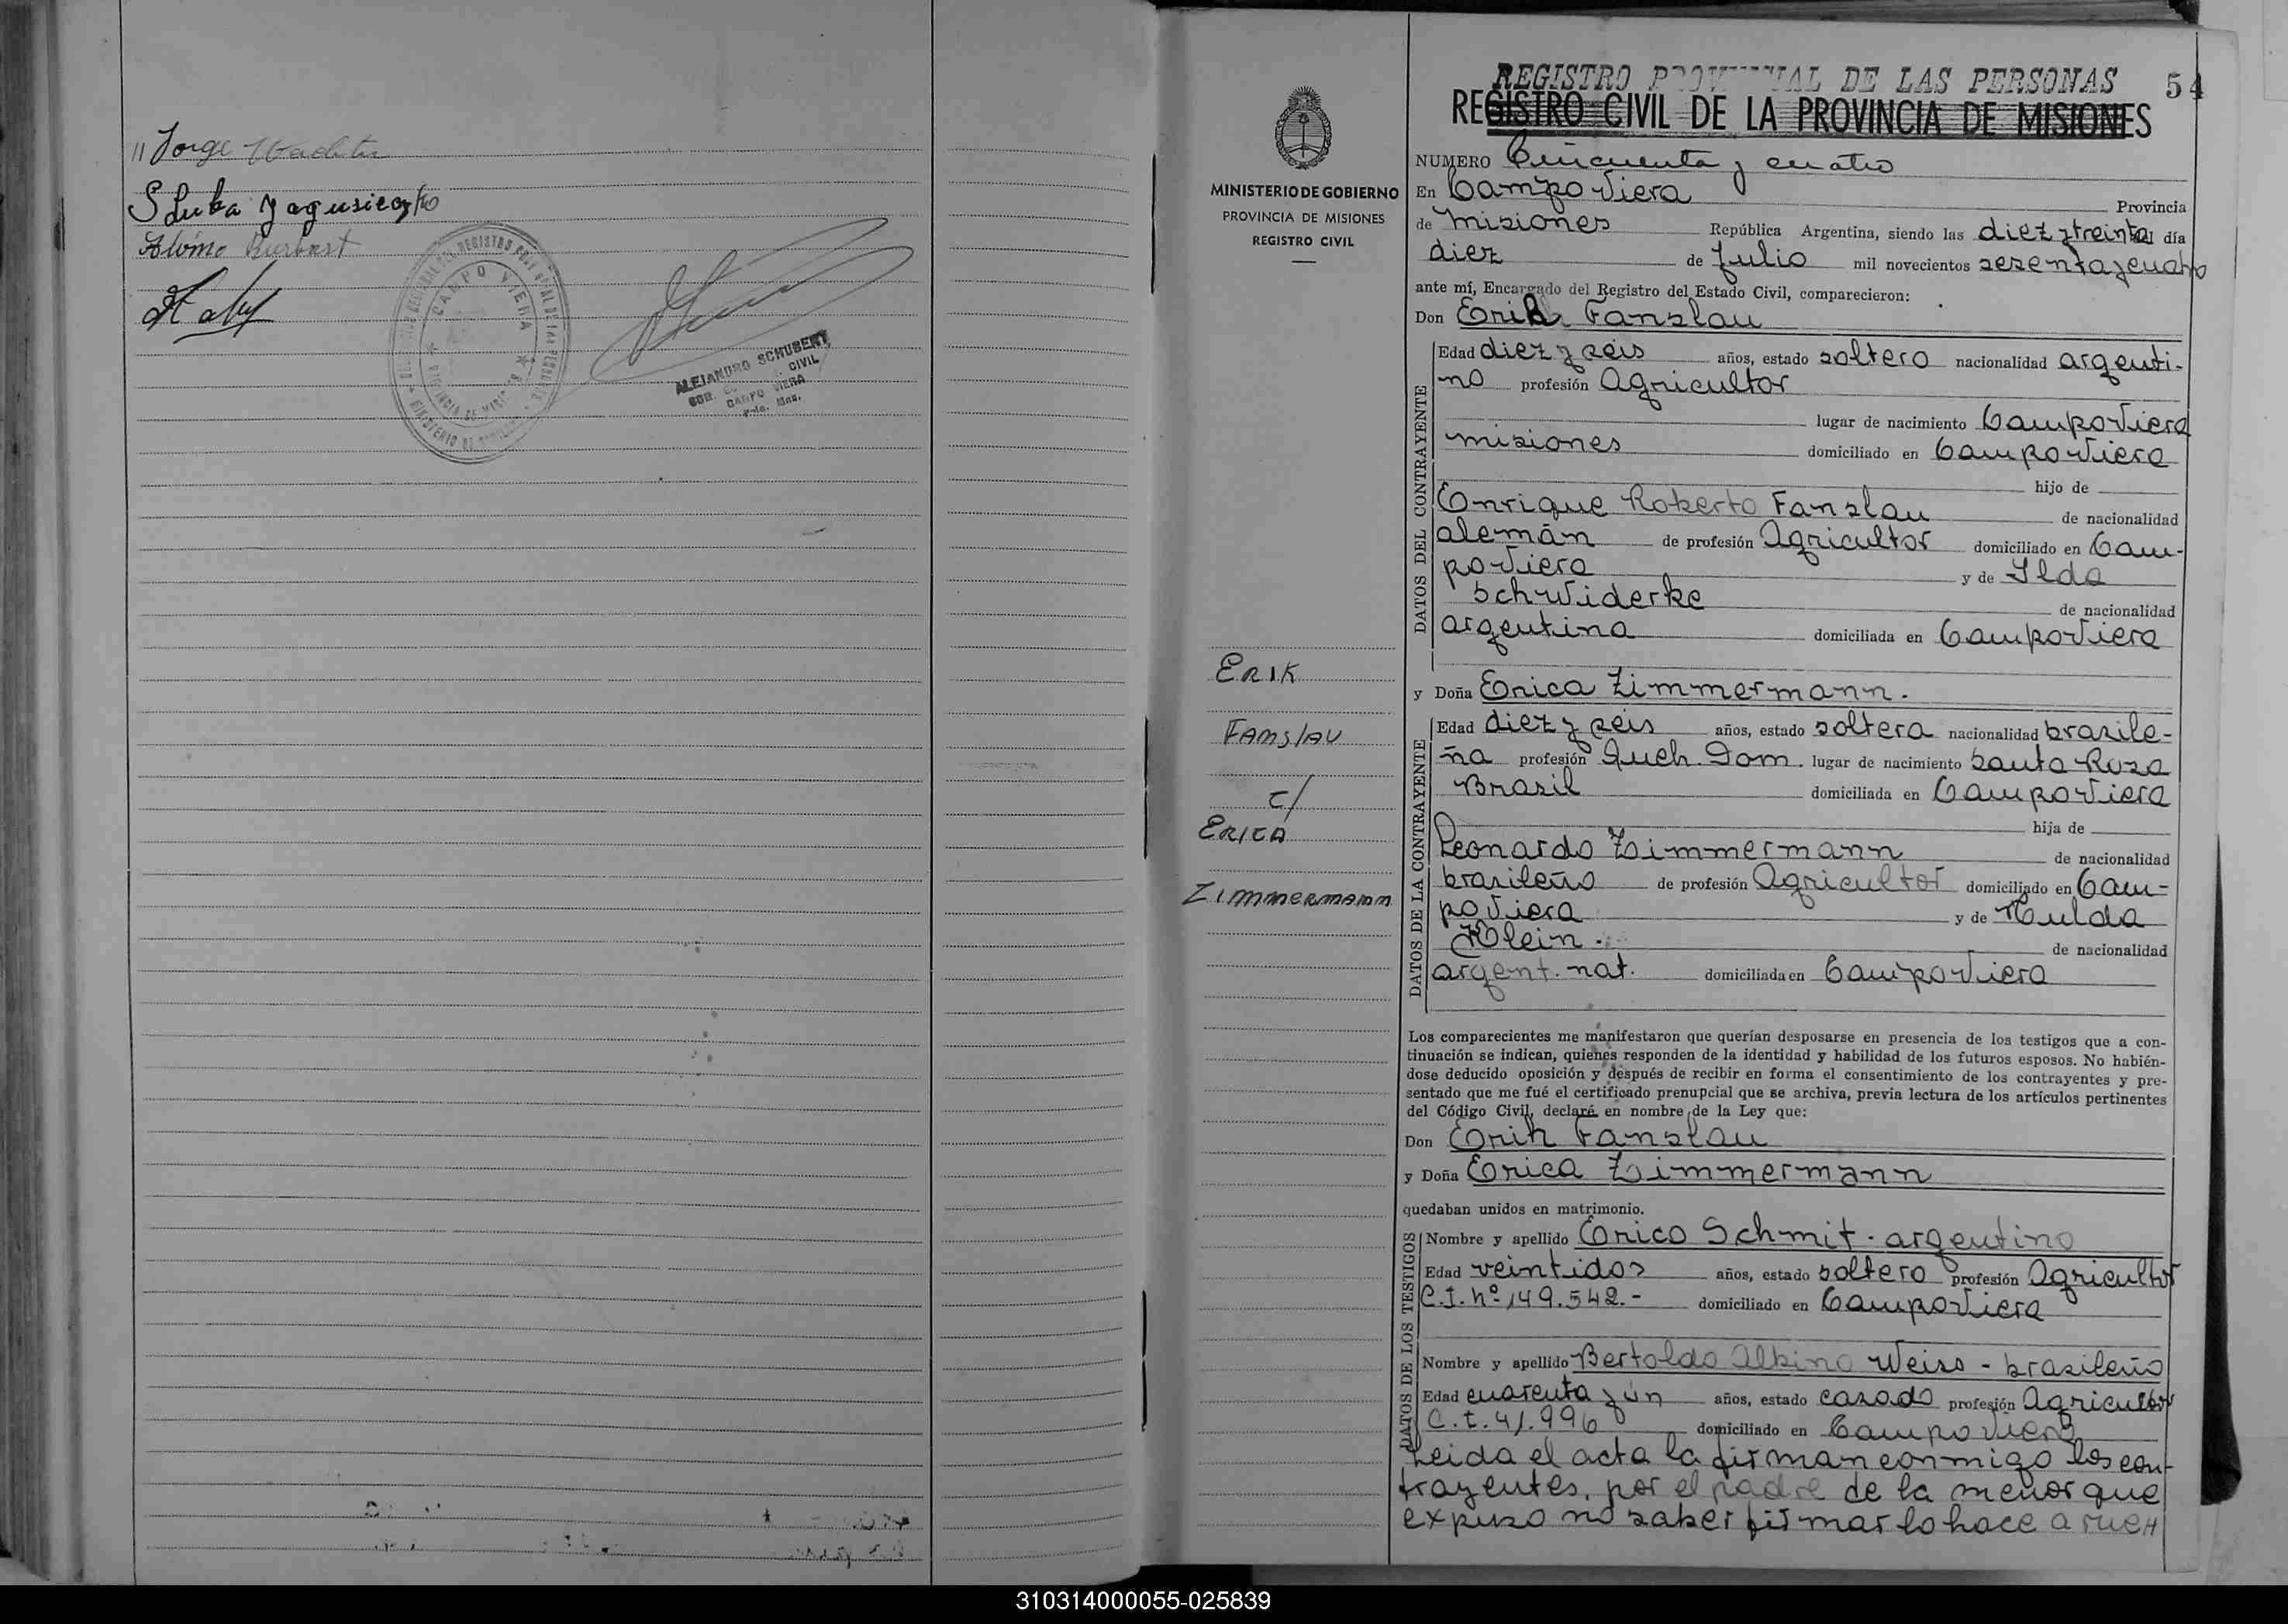 " Jorge
Sluka
Albino
CAMPO VIERA
ALEJANDRO SCHUBERT
CIVIL
CAMPO VIERA
Mns.
REGISTRO PROVINCIAL DE LAS PERSONAS 54
REGISTRO CIVIL DE LA PROVINCIA DE MISIONES
MINISTERIO DE GOBIERNO
PROVINCIA DE MISIONES
REGISTRO CIVIL
ERIK
FAMSLAU
c/
ERICA
ZIMMERMANN
NUMERO Cincuenta y cuatro
En Campo Viera Provincia
de Misiones República Argentina, siendo las diez y treinta día
diez de Julio mil novecientos sesenta y cuatro
ante mí, Encargado del Registro del Estado Civil, comparecieron:
Don Erik Fanslau
DATOS DEL CONTRAYENTE
Edad diez y seis años, estado soltero nacionalidad argenti-
no profesión Agricultor
lugar de nacimiento Campo Viera
misiones domiciliado en Campo Viera
hijo de
Enrique Roberto Fanslau de nacionalidad
alemán de profesión Agricultor domiciliado en Cam-
po Viera y de Ilda
Schwiderke de nacionalidad
argentina domiciliada en Campo Viera
y Doña Erica Zimmermann.
DATOS DE LA CONTRAYENTE
Edad diez y seis años, estado soltera nacionalidad brasile-
ña profesión Queh. Dom. lugar de nacimiento Santa Rosa
Brasil domiciliada en Campo Viera
hija de
Leonardo Zimmermann de nacionalidad
brasileño de profesión Agricultor domiciliado en Cam-
po Viera y de Hulda
Klein. de nacionalidad
argent. nat. domiciliada en Campo Viera
Los comparecientes me manifestaron que querían desposarse en presencia de los testigos que a con-
tinuación se indican, quienes responden de la identidad y habilidad de los futuros esposos. No habién-
dose deducido oposición y después de recibir en forma el consentimiento de los contrayentes y pre-
sentado que me fué el certificado prenupcial que se archiva, previa lectura de los artículos pertinentes
del Código Civil, declaré en nombre de la Ley que:
Don Erik Fanslau
y Doña Erica Zimmermann
quedaban unidos en matrimonio.
DATOS DE LOS TESTIGOS
Nombre y apellido Erico Schmit - argentino
Edad veintidos años, estado soltero profesión Agricultor
C.I. nº 149.542.- domiciliado en Campo Viera
Nombre y apellido Bertoldo Albino Weiss - brasileño
Edad cuarenta y un años, estado casado profesión Agricultor
C.I. 41.996 domiciliado en Campo Viera
Leida el acta la firman conmigo los con-
trayentes, por el padre de la menor que
expuso no saber firmar lo hace a rue
310314000055-025839